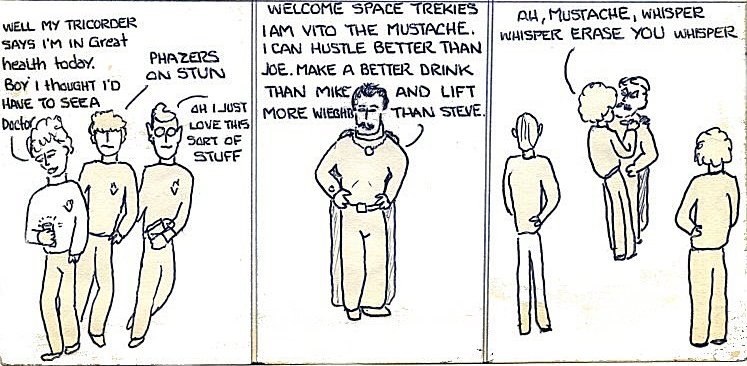 WELL MY TRICORDER
SAYS I'M IN Great
health today.
BOY I thought I'D
HAVE TO SEE A
Doctor
PHAZERS
ON STUN
OH I JUST
LOVE THIS
SORT OF
STUFF
WELCOME SPACE TREKIES
I AM VITO THE MUSTACHE.
I CAN HUSTLE BETTER THAN
JOE. MAKE A BETTER DRINK
THAN MIKE AND LIFT
MORE THAN STEVE.
AH, MUSTACHE, WHISPER
WHISPER ERASE YOU WHISPER